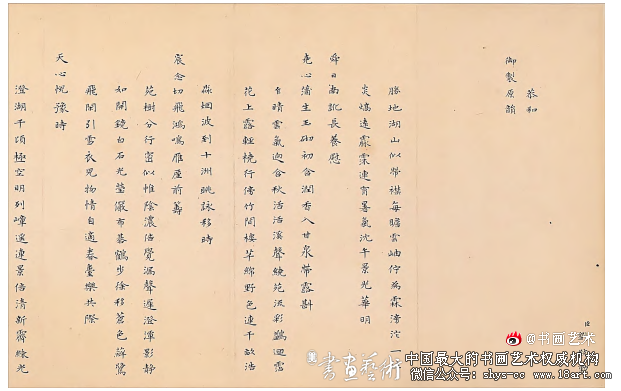 恭和
御製原韻
勝地湖山似帶襟每瞻雲岫佇為霖滂沱一
炎熇遠霢霂連宵暑氣沈午景光華明
舜日南訛長養慰
堯心生玉砌初含潤香入甘泉帶露斟
自晴雲氣迎合秋活活溪聲繞苑流彩鷁迴雲
花上露輕橈行傍竹間樓草綿野色連千畝浩
淼烟波到十洲眺詠移時
宸念切飛鴻鳴雁屋前籌
苑樹分行密似帷陰濃倍覺漏聲遲澄潭影靜
如開鏡白石光瑩儼布碁鶴步徐移蒼色蘚鷺
飛閒引雪衣兒物情自適春臺樂共際
天心悅豫時
澄湖千頃極空明列嶂遙連景倍清新霽綠光
書畫藝術
@书画艺术
中国最大的书画艺术权威机构
微信公众号: shys-cc www.18art.com